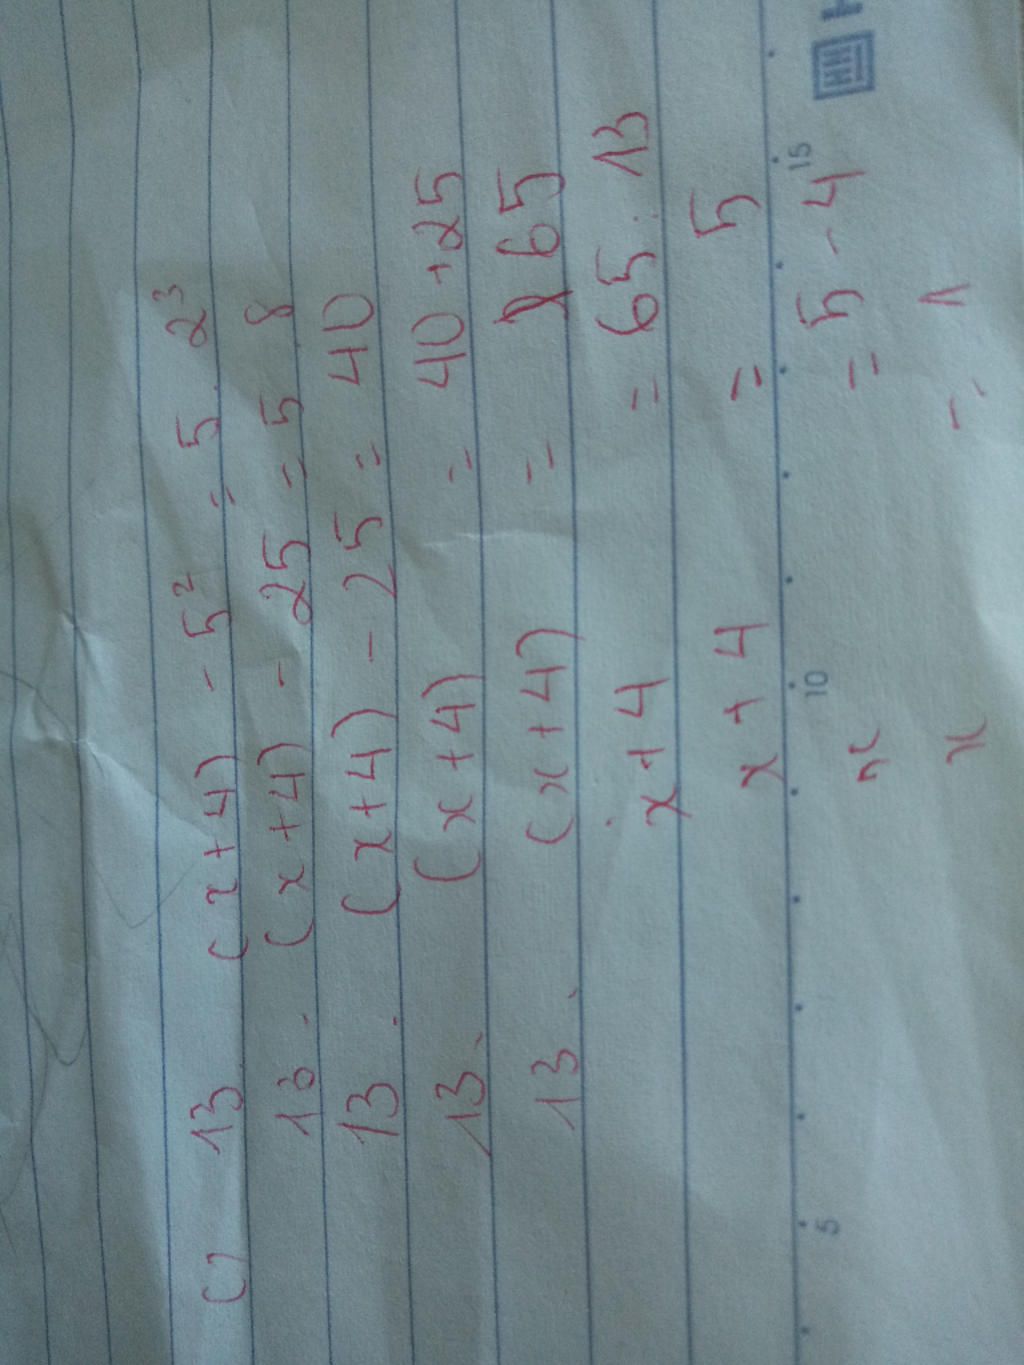 c) 13 (x+4) - 5² = 5. 2³
13. (x+4) - 25 = 5 8
13. (x+4) - 25 = 40
13. (x+4) = 40 +25
13. (x+4) = 65
x+4 = 65 : 13
x+4 = 5
x = 5 - 4
x = 1
5 10 15